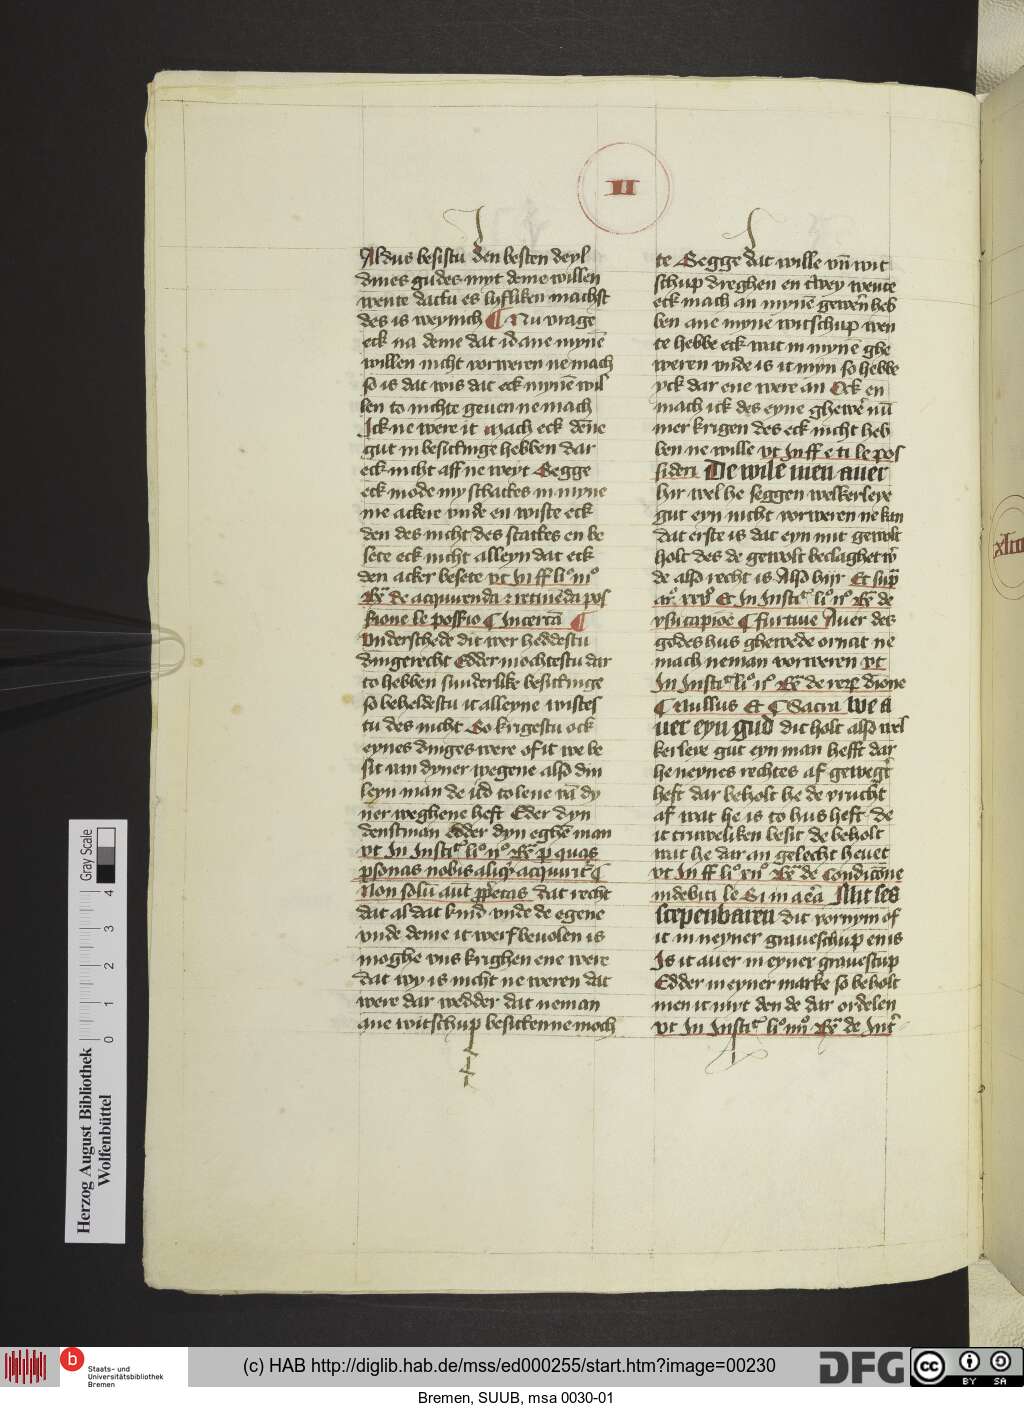 II
Aldus besistu den besten deyl
dines gudes myt deme willen
wente dattu es lifliken machst
des is weynich ¶ Nu vrage
eck na deme dat id ane mynē
willen nicht vorweren ne mach
so is dat wis dat eck mynē wil
len to nichte geuen ne mach
Ick ne were it mach eck dēne
gut in besittinge hebben dar
eck nicht aff ne weyt Segge
eck mode my schattes in myne
me ackere vnde en wiste eck
den des nicht des scattes en be
sete eck nicht alleyn dat eck
den acker besete vt In ff li° iii°
Rͣ de acquirenda ⁊ retinēda pos
sione le possio ¶ Incertā ¶
Vnderschede dit wer heddestu
dingerecht Edder mochtestu dar
to hebben sunderlike besittinge
so beheldestu it alleyne wistes
tu des nicht So krigestu ock
eynes dinges were of it we be
sit van dyner wegene also din
leyn man de it to lene vā dy
ner weghene heft Eder dyn
denstman Edder dyn eghē man
vt In Instiͭ li° ii° Rͣ p quas
psonas nobis aliqͥ acquiritͬ ¶
Non solū aut ppͥetas dat recht
dat al dat kind vnde de egene
vnde deme it werf beuolen is
moghe vns krighen ene were
Dat wy is nicht ne weren dat
were dar wedder dat neman
ane witschup besitten ne moch
te Segge dat wille vn̄ wit
schup dreghen en twey wente
eck mach an mynē gewerͤ heb
ben ane myne witschup wen
te hebbe eck wat in mynē ghe
weren vnde is it myn so hebbe
yck dar ene were an Ock en
mach ick des eyne ghewerͤ nū
mer krigen des eck nicht heb
ben ne wille vt In ff e ti le pos
sideri De wile men auer
hir wel he seggen welkerleye
gut eyn nicht vorweren ne kan
dat erste is dat eyn mit gewolt
holt des de gewolt beclaghet wͬ
de also recht is Also hijr Et supͣ
arͦ xxvͦ Et In Instiͭ li° ii° Rͣ de
vsucapioē ¶ furtiue Auer des
godes hus ghewēde ornat ne
mach neman vorweren vt
In Instiͭ li° ii° Rͣ de reꝝ diōne
¶ Nullus Et ¶ Sacra We a
uer eyn gud dit holt also wel
kerleye gut eyn man hefft dar
he neynes rechtes af gewegͬt
heft dar beholt he de vrucht
af wat he is to hus heft de
it truweliken besit de beholt
wat he dar an gelecht heuet
vt In ff li° xii° Rͣ de condicōne
indebiti le Si in aēa Mit sed
scepenbaren dit vornym of
it in neyner graueschup en is
Is it auer in eyner grauescup
Edder in eyner marke so beholt
men it myt den de dar ordelen
vt In Instiͭ li° iiii° Rͣ de Intͬ
xliii
Gray Scale
4 3 2 1 0
Herzog August Bibliothek
Wolfenbüttel
b
Staats- und
Universitätsbibliothek
Bremen
(c) HAB http://diglib.hab.de/mss/ed000255/start.htm?image=00230
DFG
cc BY SA
Bremen, SUUB, msa 0030-01